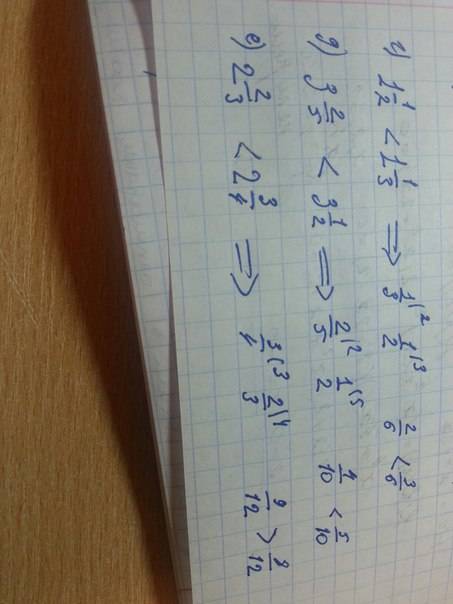 г) 1 1/2 < 1 1/3 ⇒ 1/3(2 1/2(3 2/6 < 3/6
д) 3 2/5 < 3 1/2 ⇒ 2/5(2 1/2(5 4/10 < 5/10
е) 2 2/3 < 2 3/4 ⇒ 3/4(3 2/3(4 9/12 > 8/12